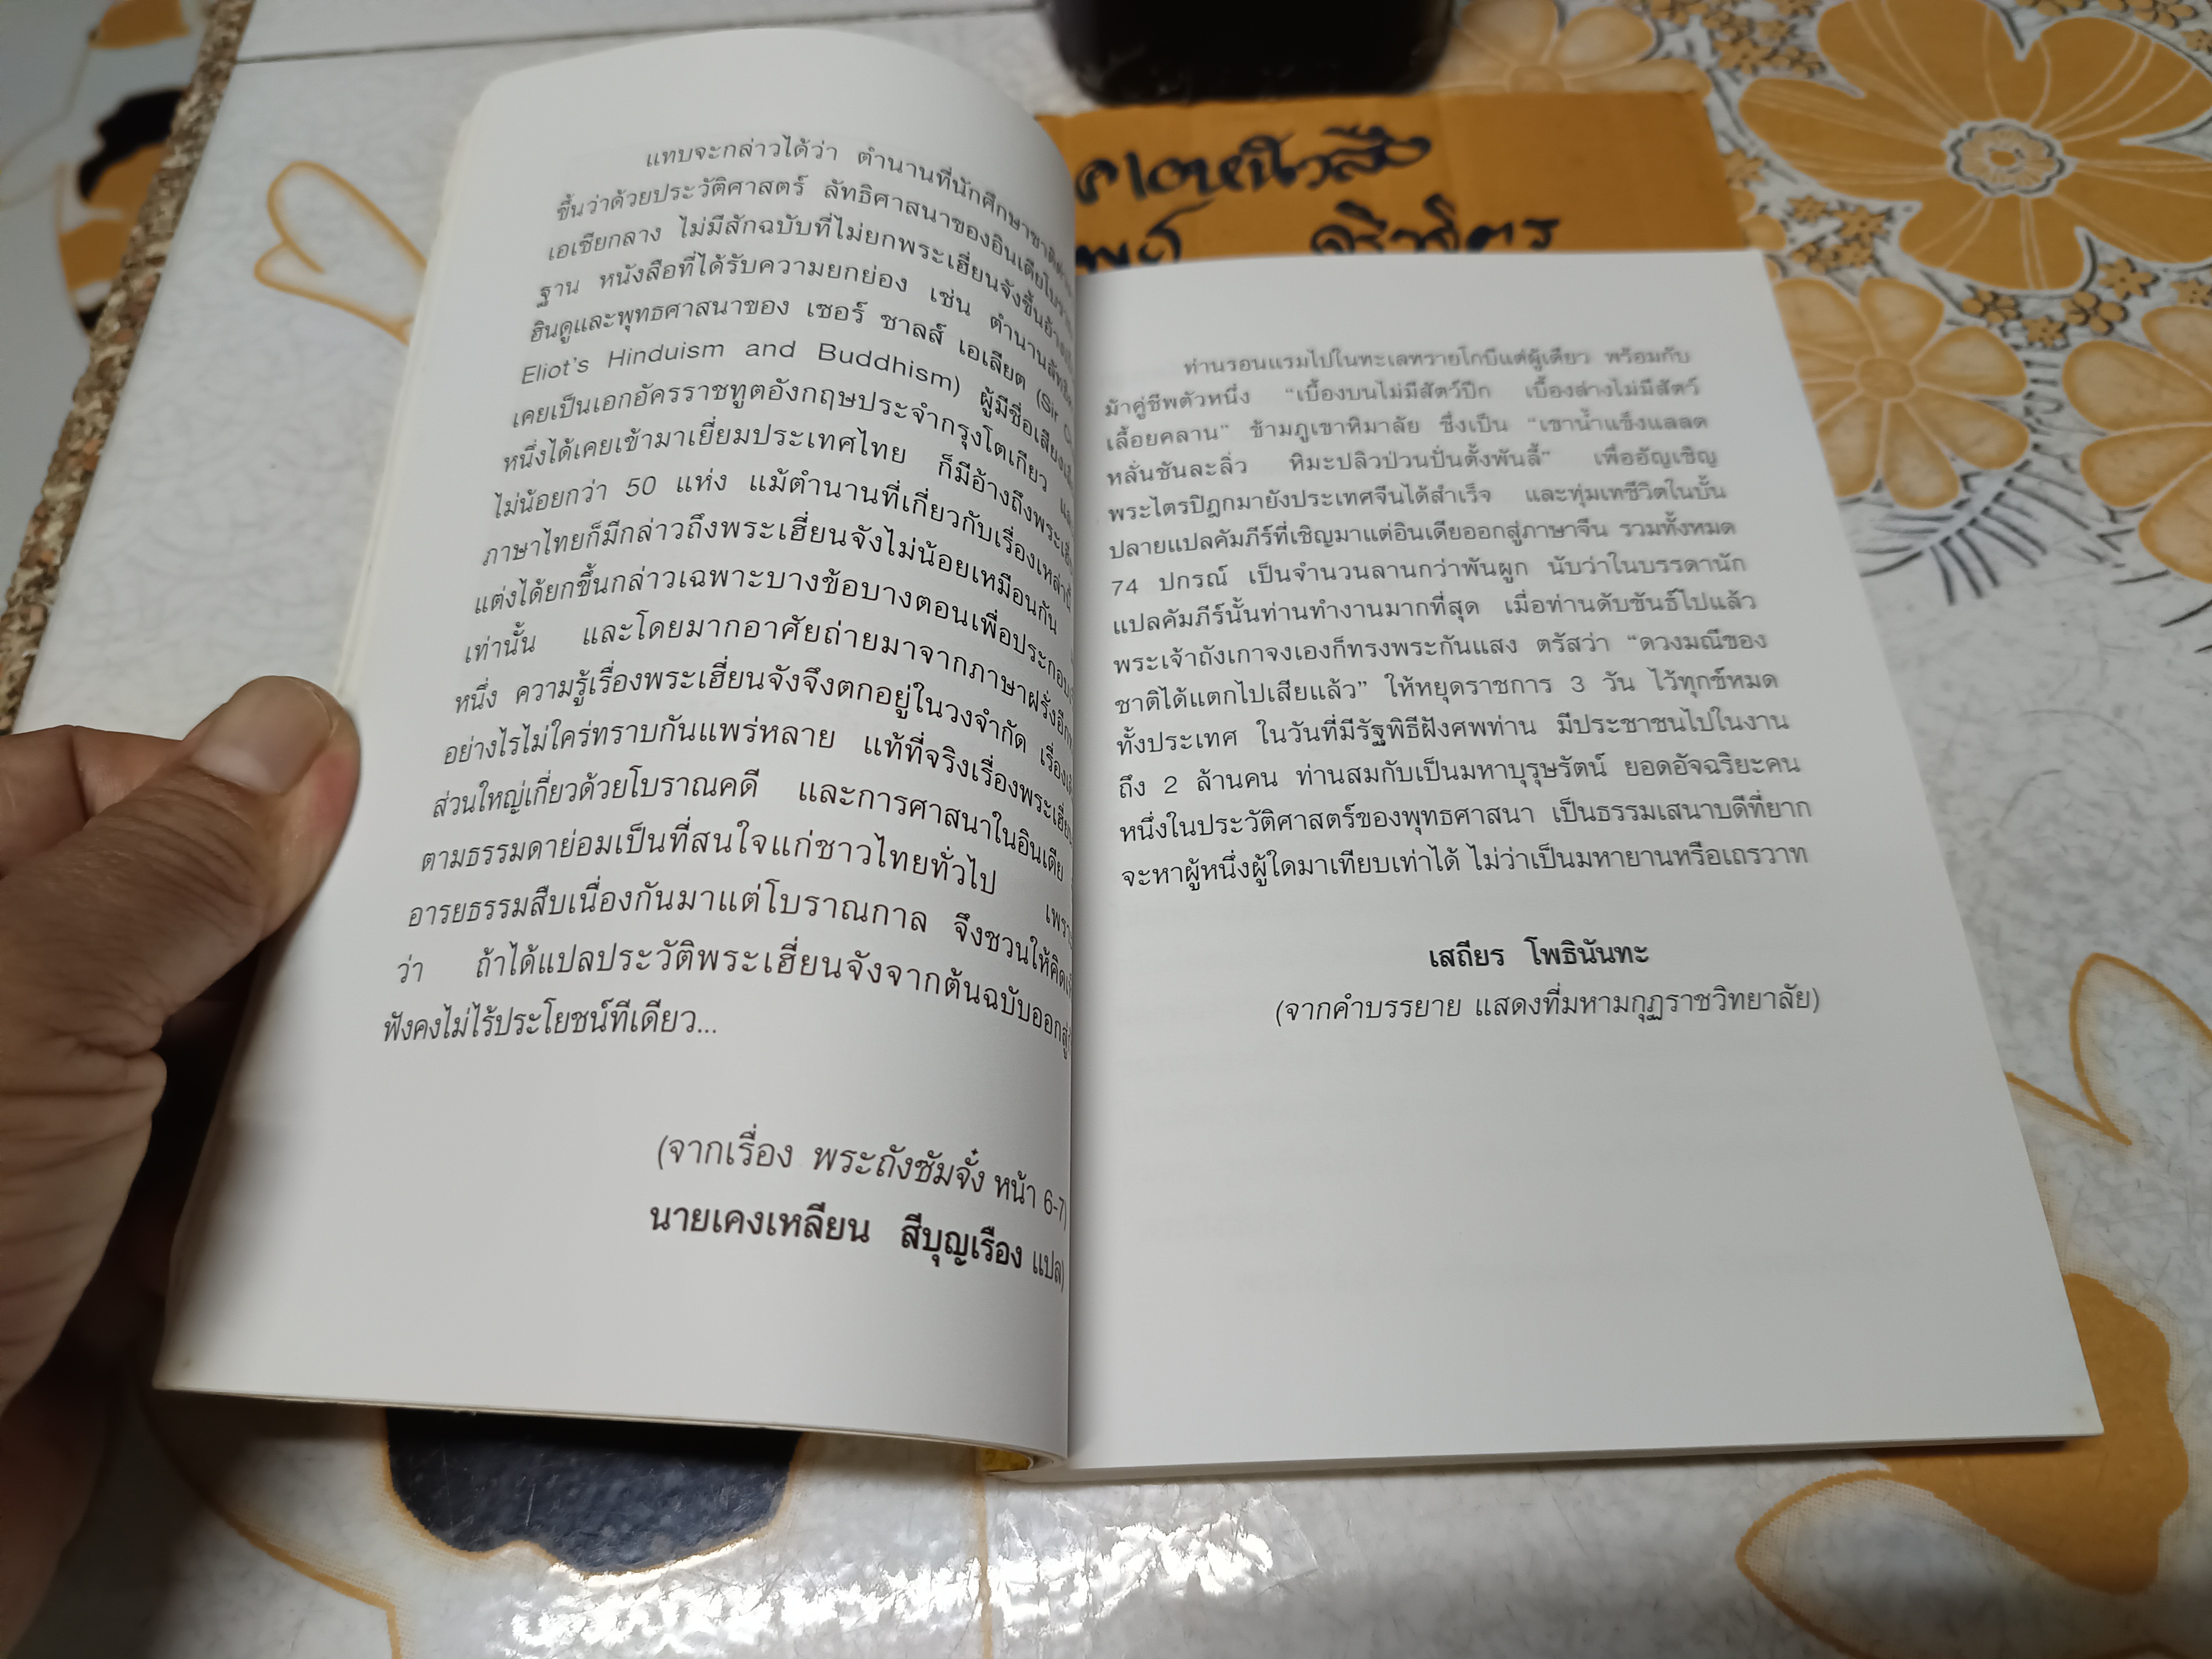 แทบจะกล่าวได้ว่า ตำนานที่นักศึกษาชาติ
ขึ้นว่าด้วยประวัติศาสตร์ ลัทธิศาสนาของอินเดียโบราณ
เอเซียกลาง ไม่มีสักฉบับที่ไม่ยกพระเฮี่ยนจังขึ้นอ้าง
ฐาน หนังสือที่ได้รับความยกย่อง เช่น ตำนานลัทธิ
ฮินดูและพุทธศาสนาของ เซอร์ ชาลส์ เอเลียต (Sir
Eliot's Hinduism and Buddhism) ผู้มีชื่อเสียง
เคยเป็นเอกอัครราชทูตอังกฤษประจำกรุงโตเกียว
หนึ่งได้เคยเข้ามาเยี่ยมประเทศไทย ก็มีอ้างถึงพระ
ไม่น้อยกว่า 50 แห่ง แม้ตำนานที่เกี่ยวกับเรื่องเหล่านี้
ภาษาไทยก็มีกล่าวถึงพระเฮี่ยนจังไม่น้อยเหมือนกัน
แต่งได้ยกขึ้นกล่าวเฉพาะบางข้อบางตอนเพื่อประกอบ
เท่านั้น และโดยมากอาศัยถ่ายมาจากภาษาฝรั่งอีก
หนึ่ง ความรู้เรื่องพระเฮี่ยนจังจึงตกอยู่ในวงจำกัด เรื่อง
อย่างไรไม่ใคร่ทราบกันแพร่หลาย แท้ที่จริงเรื่องพระเฮี่ยน
ส่วนใหญ่เกี่ยวด้วยโบราณคดี และการศาสนาในอินเดีย
ตามธรรมดาย่อมเป็นที่สนใจแก่ชาวไทยทั่วไป เพราะ
อารยธรรมสืบเนื่องกันมาแต่โบราณกาล จึงชวนให้คิด
ว่า ถ้าได้แปลประวัติพระเฮี่ยนจังจากต้นฉบับออกสู่
ฟังคงไม่ไร้ประโยชน์ทีเดียว...
(จากเรื่อง พระถังซัมจั๋ง หน้า 6-7)
นายเคงเหลียน สีบุญเรือง แปล)
คาเฮหนิวสือ
ท่านรอนแรมไปในทะเลทรายโกบีแต่ผู้เดียว พร้อมกับ
ม้าคู่ชีพตัวหนึ่ง "เบื้องบนไม่มีสัตว์ปีก เบื้องล่างไม่มีสัตว์
เลื้อยคลาน" ข้ามภูเขาหิมาลัย ซึ่งเป็น "เขาน้ำแข็งแลลด
หลั่นชันละลิ่ว หิมะปลิวป่วนปั่นตั้งพันลี้" เพื่ออัญเชิญ
พระไตรปิฎกมายังประเทศจีนได้สำเร็จ และทุ่มเทชีวิตในบั้น
ปลายแปลคัมภีร์ที่เชิญมาแต่อินเดียออกสู่ภาษาจีน รวมทั้งหมด
74 ปกรณ์ เป็นจำนวนลานกว่าพันผูก นับว่าในบรรดานัก
แปลคัมภีร์นั้นท่านทำงานมากที่สุด เมื่อท่านดับขันธ์ไปแล้ว
พระเจ้าถังเกาจงเองก็ทรงพระกันแสง ตรัสว่า "ดวงมณีของ
ชาติได้แตกไปเสียแล้ว" ให้หยุดราชการ 3 วัน ไว้ทุกข์หมด
ทั้งประเทศ ในวันที่มีรัฐพิธีฝังศพท่าน มีประชาชนไปในงาน
ถึง 2 ล้านคน ท่านสมกับเป็นมหาบุรุษรัตน์ ยอดอัจฉริยะคน
หนึ่งในประวัติศาสตร์ของพุทธศาสนา เป็นธรรมเสนาบดีที่ยาก
จะหาผู้หนึ่งผู้ใดมาเทียบเท่าได้ ไม่ว่าเป็นมหายานหรือเถรวาท
เสถียร โพธินันทะ
(จากคำบรรยาย แสดงที่มหามกุฏราชวิทยาลัย)